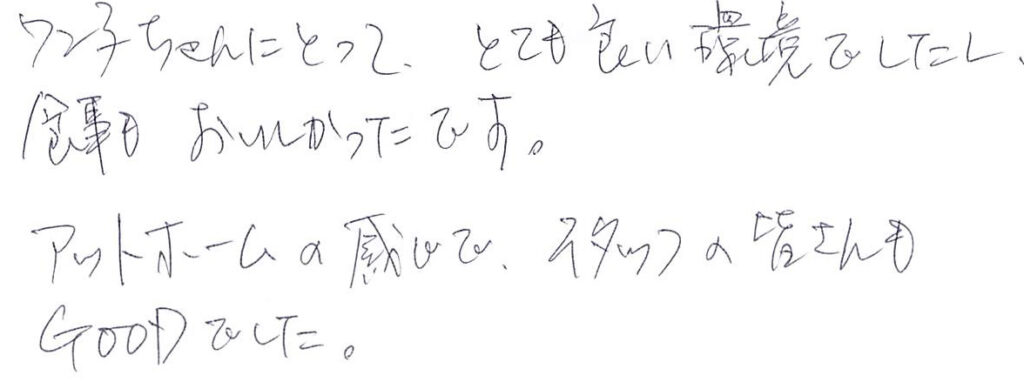 ワン子ちゃんにとって、とても良い環境でしたし、
食事も おいしかったです。
アットホームの感じで、スタッフの皆さんも
GOODでした。